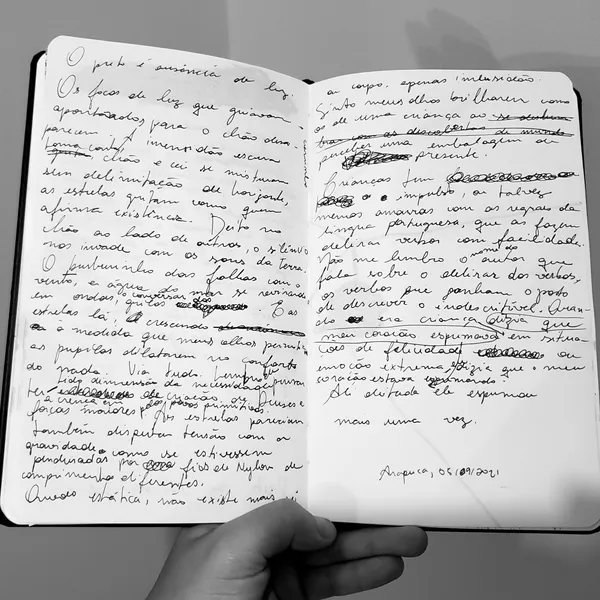 O preto é ausência de luz.
Os focos de luz que guiavam
apontados para o chão desa-
parecem. A imensidão escura
toma conta, chão e céu se misturam
sem delimitação de horizonte,
as estrelas gritam como quem
afirma existência. Deito no
chão ao lado de outros, o silêncio
nos invade com os sons da terra.
O burburinho das folhas com o
vento, a água do mar se revirando
em ondas, conversas dos grilos. E as
estrelas lá, crescendo
à medida que meus olhos permitem
as pupilas dilatarem no conforto
do nada. Via tudo.
dimensão da necessidade
criação de Deuses e
forças maiores pelos povos primitivos. As estrelas pareciam
também disputar tensão com a
gravidade, como se estivessem
penduradas por fios de Nylon de
comprimentos diferentes.
Quando estática, não existe mais
ou corpo, apenas imensidão.
Sinto meus olhos brilharem como
os de uma criança ao se deslum
brar com as descobertas do mundo
perceber uma embalagem de
presente.
Crianças tem
o impulso, ou talvez
menos amarras com as regras da
língua portuguesa, que as fazem
delirar versos com facilidade.
Não me lembro o nome do autor que
fala sobre o delirar dos verbos,
os verbos que ganham o posto
de descrever o indescritível. Quan-
do era criança dizia que
meu coração espumava em situa-
ções de felicidade ou
emoção extrema, dizia que o meu
coração estava espumando.
Ali deitada ele espumou
mais uma vez.
05/09/2021